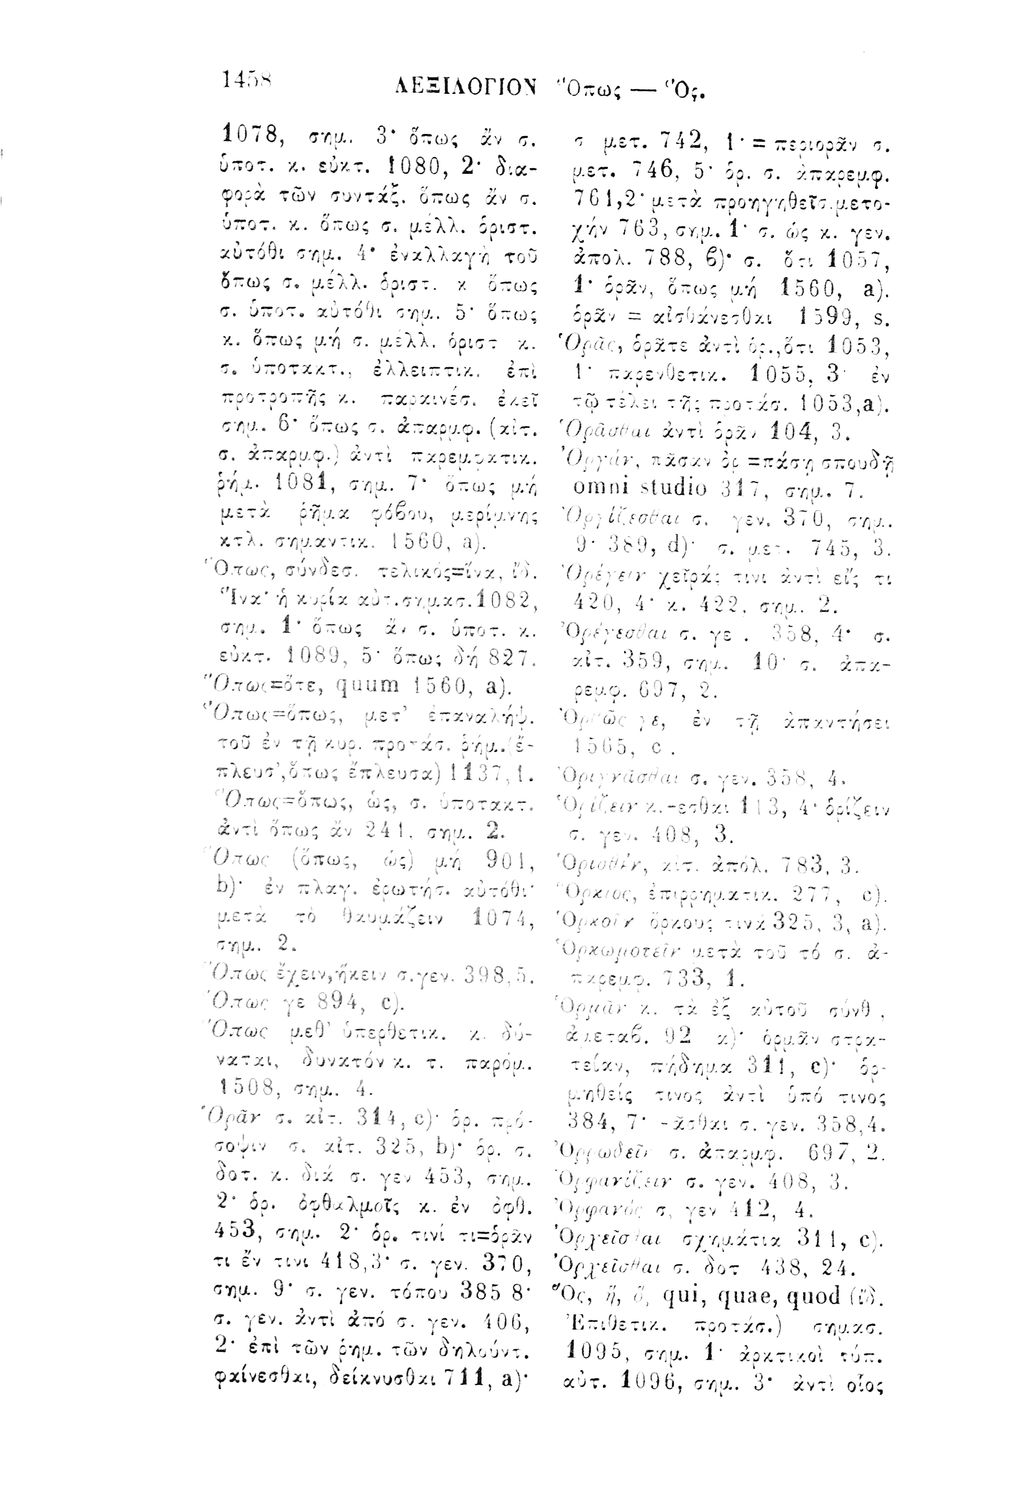 1458 ΛΕΞΙΛΟΓΙΟΝ Ὅπως — Ὅς.
1078, σημ. 3· ὅπως ἄν σ.
ὑποτ. κ. εὐκτ. 1080, 2· δια-
φορὰ τῶν συντάξ. ὅπως ἄν σ.
ὑποτ. κ. ὅπως σ. μέλλ. ὁριστ.
αὐτόθι σημ. 4· ἐναλλαγὴ τοῦ
ὅπως σ. μέλλ. ὁριστ. κ ὅπως
σ. ὑποτ. αὐτόθι σημ. 5· ὅπως
κ. ὅπως μή σ. μέλλ. ὁριστ κ.
σ. ὑποτακτ., ἐλλειπτικ. ἐπὶ
προτροπῆς κ. παραινέσ. ἐκεῖ
σημ. 6· ὅπως σ. ἀπαρμφ. (αἰτ.
σ. ἀπαρμφ.) ἀντὶ παρεμφατικ.
ῥήμ. 1081, σημ. 7· ὅπως μή
μετὰ ῥῆμα φόβου, μερίμνης
κτλ. σημαντικ. 1560, a).
Ὅπως, σύνδεσ. τελικὸς=ἵνα, ἰδ.
Ἵνα· ἡ κυρία αὐτ.σημασ.1082,
σημ. 1· ὅπως ἄν σ. ὑποτ. κ.
εὐκτ. 1089, 5· ὅπως δή 827.
Ὅπως=ὅτε, quum 1560, a).
Ὅπως=ὅπως, μετ' ἐπαναλήψ.
τοῦ ἐν τῇ κυρ. προτάσ. ῥήμ. (ἔ-
πλευσ', ὅπως ἔπλευσα) 1137, 1.
Ὅπως=ὅπως, ὡς, σ. ὑποτακτ.
ἀντὶ ὅπως ἄν 241. σημ. 2.
Ὅπως (ὅπως, ὡς) μή 901,
b)· ἐν πλαγ. ἐρωτήσ. αὐτόθι·
μετὰ τὸ θαυμάζειν 1074,
σημ. 2.
Ὅπως ἔχειν, ἥκειν σ.γεν. 398,5.
Ὅπως γε 894, c).
Ὅπως μεθ' ὑπερθετικ. κ. δύ-
ναται, δυνατόν κ. τ. παρόμ.
1508, σημ. 4.
Ὁρᾶν σ. αἰτ. 314, c)· ὁρ. πρό-
σοψιν σ. αἰτ. 325, b)· ὁρ. σ.
δοτ. κ. διά σ. γεν 453, σημ.
2· ὁρ. ὀφθαλμοῖς κ. ἐν ὀφθ.
453, σημ. 2· ὁρ. τινί τι=ὁρᾶν
τι ἔν τινι 418,3· σ. γεν. 370,
σημ. 9· σ. γεν. τόπου 385 8·
σ. γεν. ἀντὶ ἀπό σ. γεν. 406,
2· ἐπὶ τῶν ῥημ. τῶν δηλούντ.
φαίνεσθαι, δείκνυσθαι 711, a)·
σ μετ. 742, 1·=περιορᾶν σ.
μετ. 746, 5· ὁρ. σ. ἀπαρεμφ.
761,2· μετὰ προηγηθεῖσ.μετο-
χὴν 763, σημ. 1· σ. ὡς κ. γεν.
ἀπολ. 788, β)· σ. ὅτι 1057,
1· ὁρᾶν, ὅπως μή 1560, a).
ὁρᾶν = αἰσθάνεσθαι 1599, s.
Ὁρᾷς, ὁρᾶτε ἀντὶ ὁρ., ὅτι 1053,
1· παρενθετικ. 1055, 3· ἐν
τῷ τέλει τῆς προτάσ. 1053,a).
Ὁρᾶσθαι ἀντὶ ὁρᾶν 104, 3.
πᾶσαν ὀρ =πάσῃ σπουδῇ
omni studio 317, σημ. 7.
Ὀργίζεσθαι σ. γεν. 370, σημ.
9· 389, d)· σ. μετ. 745, 3.
Ὀρέγειν χεῖράς τινι ἀντὶ εἴς τι
420, 4· κ. 422. σημ. 2.
Ὀρέγεσθαι σ. γε . 358, 4· σ.
αἰτ. 359, σημ. 10· σ. ἀπα-
ρεμφ. 697, 2.
Ὀρθῶς γε, ἐν τῇ ἀπαντήσει
1565, c .
Ὀριγνᾶσθαι σ. γεν. 358, 4.
Ὁρίζειν κ.-εσθαι 113, 4· ὁρίζειν
σ. γεν. 408, 3.
Ὁρισθέν, αἰτ. ἀπόλ. 783, 3.
Ὅρκιος, ἐπιρρηματικ. 277, c).
Ὁρκοῦν ὅρκους τινά 325, 3, a).
Ὁρκωμοτεῖν μετὰ τοῦ τό σ. ἀ-
παρεμφ. 733, 1.
Ὁρμᾶν κ. τὰ ἐξ αὐτοῦ σύνθ ,
ἀμεταβ. 92 α)· ὁρμᾶν στρα-
τείαν, πήδημα 311, c)· ὁρ-
μηθείς τινος ἀντὶ ὑπό τινος
384, 7· -ᾶσθαι σ. γεν. 358,4.
Ὀρρωδεῖν σ. ἀπαρμφ. 697, 2.
Ὀρφανίζειν σ. γεν. 408, 3.
Ὀρφανός σ, γεν 412, 4.
Ὀρχεῖσθαι σχημάτια 311, c).
Ὀρχεῖσθαι σ. δοτ 438, 24.
Ὅς, ἥ, ὅ, qui, quae, quod (ἰδ.
Ἐπιθετικ. προτάσ.) σημασ.
1095, σημ. 1· ἀρκτικοὶ τύπ.
αὐτ. 1096, σημ. 3· ἀντὶ οἷος